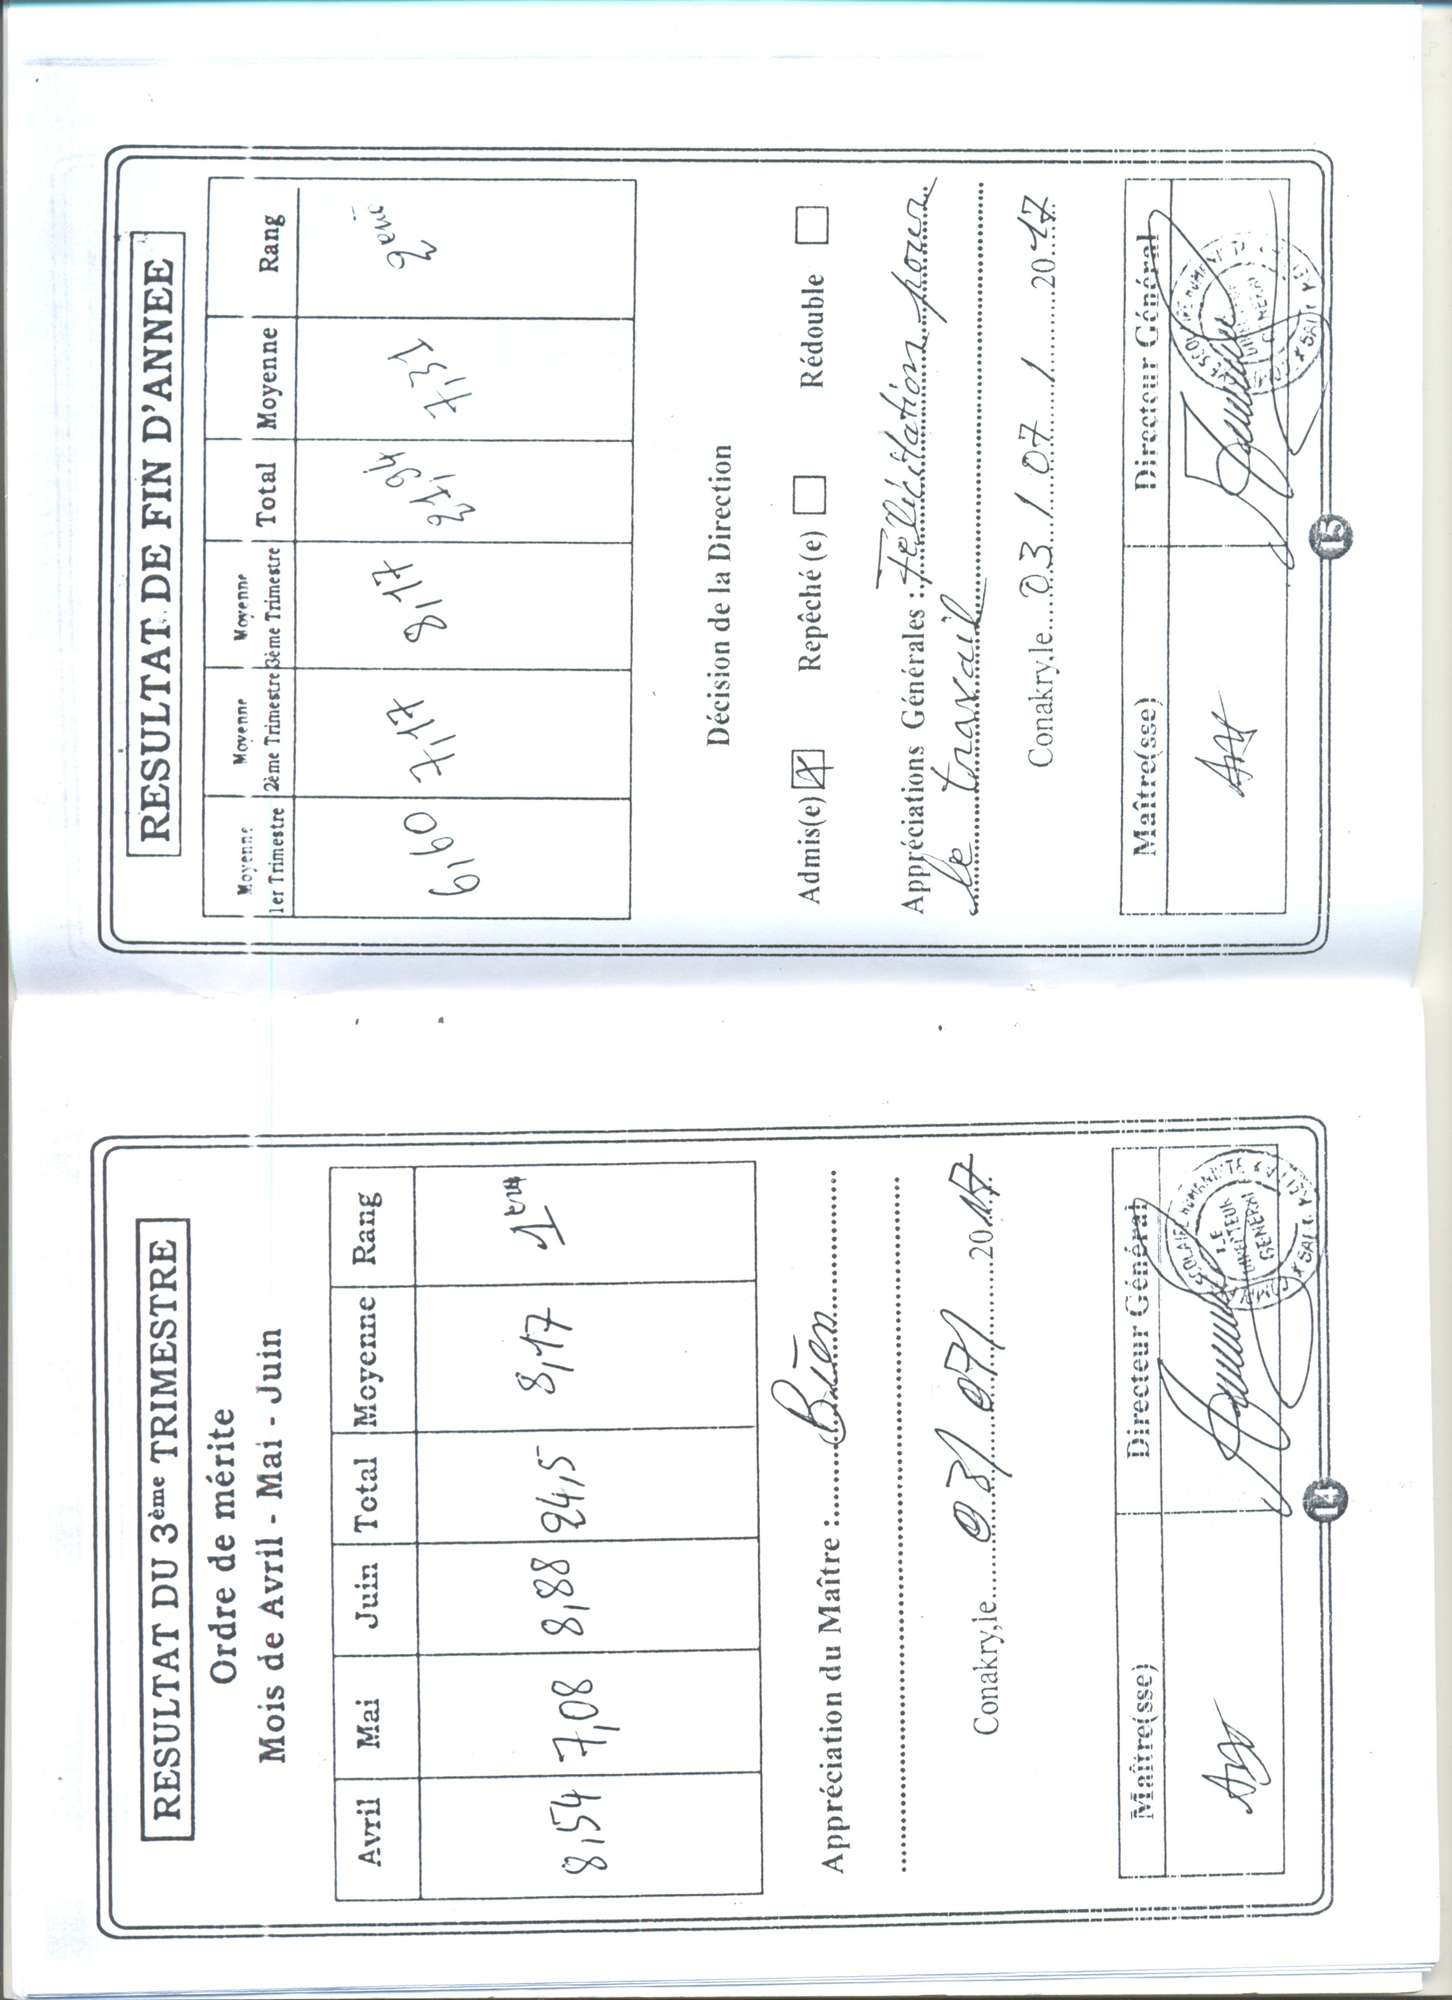 RESULTAT DU 3ème TRIMESTRE
Ordre de mérite
Mois de Avril - Mai - Juin
Avril Mai Juin Total Moyenne Rang
8,54 7,08 8,88 24,5 8,17 1er
Appréciation du Maître : Bien
Conakry, le 03/07/2017
Maître(sse) Directeur Général
LE DIRECTEUR GENERAL
14
RESULTAT DE FIN D'ANNEE
Moyenne 1er Trimestre Moyenne 2ème Trimestre Moyenne 3ème Trimestre Total Moyenne Rang
6,60 7,17 8,17 21,94 7,31 2ème
Décision de la Direction
Admis(e) X Repêché (e) Rédouble
Appréciations Générales : Félicitation pour
le travail
Conakry, le 03/07/2017
Maître(sse) Directeur Général
15